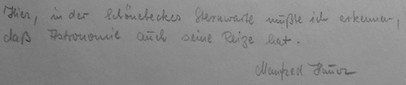 Hier, in der Schönebecker Sternwarte mußte ich erkennen,
daß Astronomie auch seine Reize hat.
Manfred